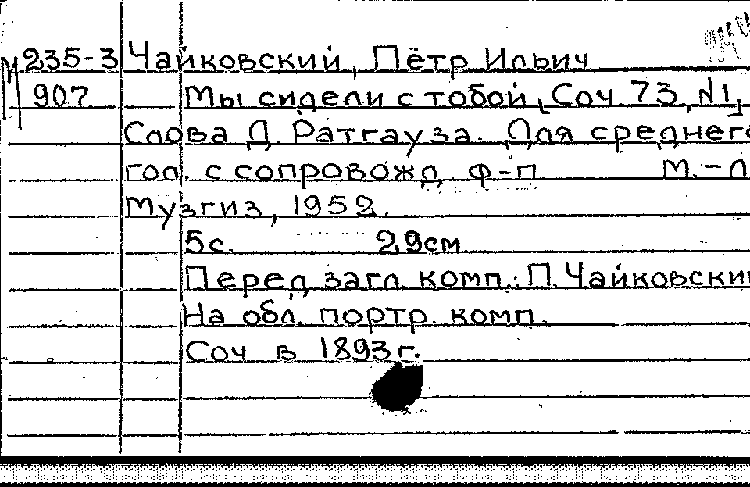 М 235-3 Чайковский, Пётр Ильич
907 Мы сидели с тобой, Соч 73, №1,
Слова Д. Ратгауза. Для среднего
гол. с сопровожд ф-п М.-Л
Музгиз, 1952.
5с. 29см
Перед загл. комп.: П. Чайковский
На обл. портр. комп.
Соч в 1893г.